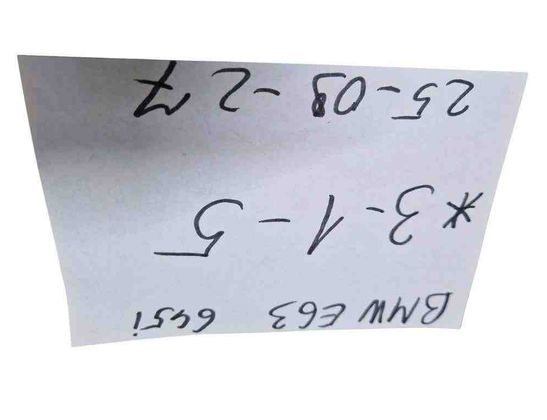 BMW E63 645i
*3-1-5
25-08-27